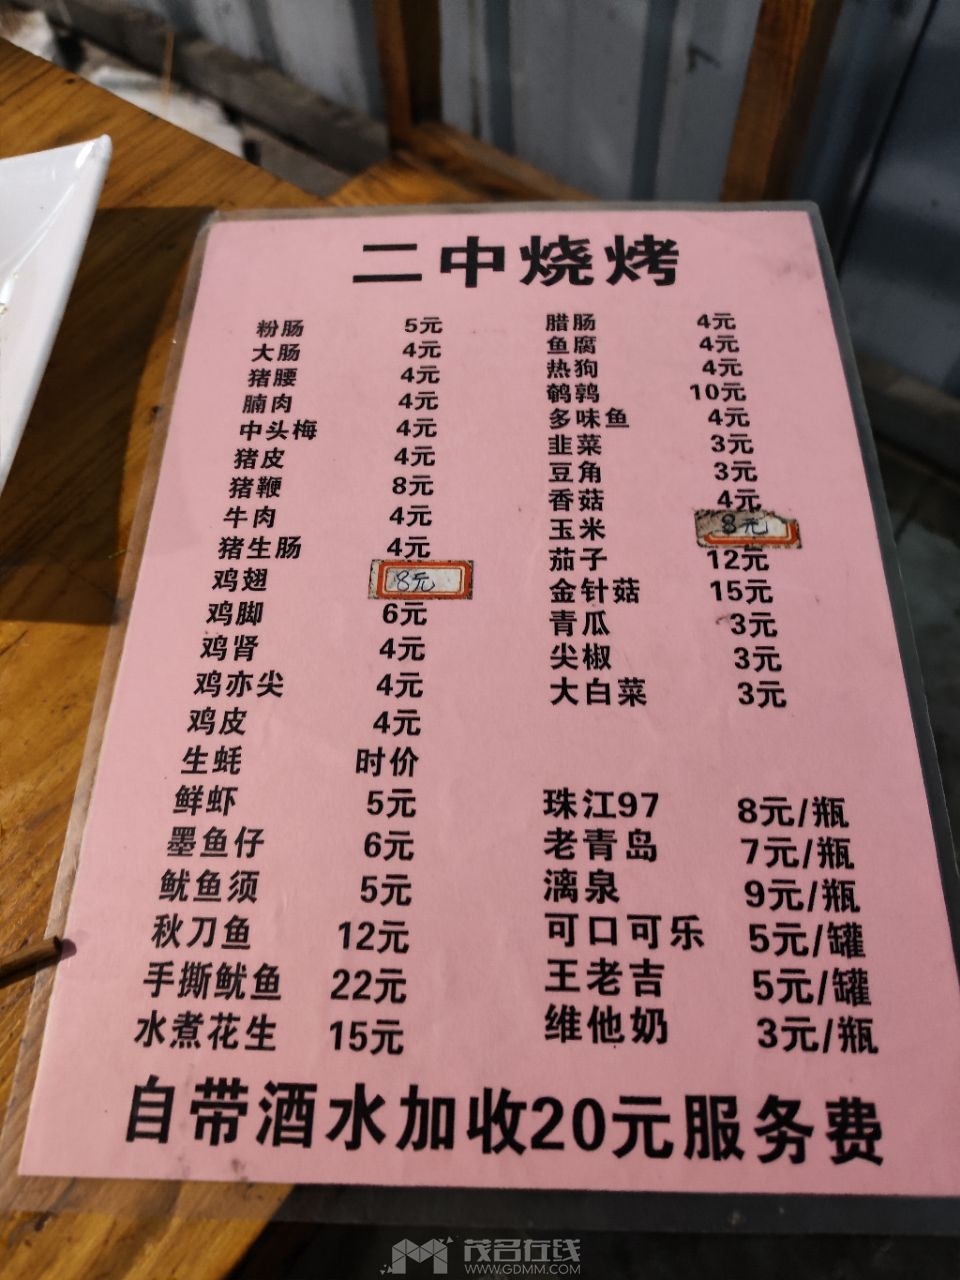 二中烧烤
粉肠 5元
大肠 4元
猪腰 4元
腩肉 4元
中头梅 4元
猪皮 4元
猪鞭 8元
牛肉 4元
猪生肠 4元
鸡翅 8元
鸡脚 6元
鸡肾 4元
鸡亦尖 4元
鸡皮 4元
生蚝 时价
鲜虾 5元
墨鱼仔 6元
鱿鱼须 5元
秋刀鱼 12元
手撕鱿鱼 22元
水煮花生 15元
腊肠 4元
鱼腐 4元
热狗 4元
鹌鹑 10元
多味鱼 4元
韭菜 3元
豆角 3元
香菇 4元
玉米 8元
茄子 12元
金针菇 15元
青瓜 3元
尖椒 3元
大白菜 3元
珠江97 8元/瓶
老青岛 7元/瓶
漓泉 9元/瓶
可口可乐 5元/罐
王老吉 5元/罐
维他奶 3元/瓶
自带酒水加收20元服务费
茂名在线
WWW.GDMM.COM